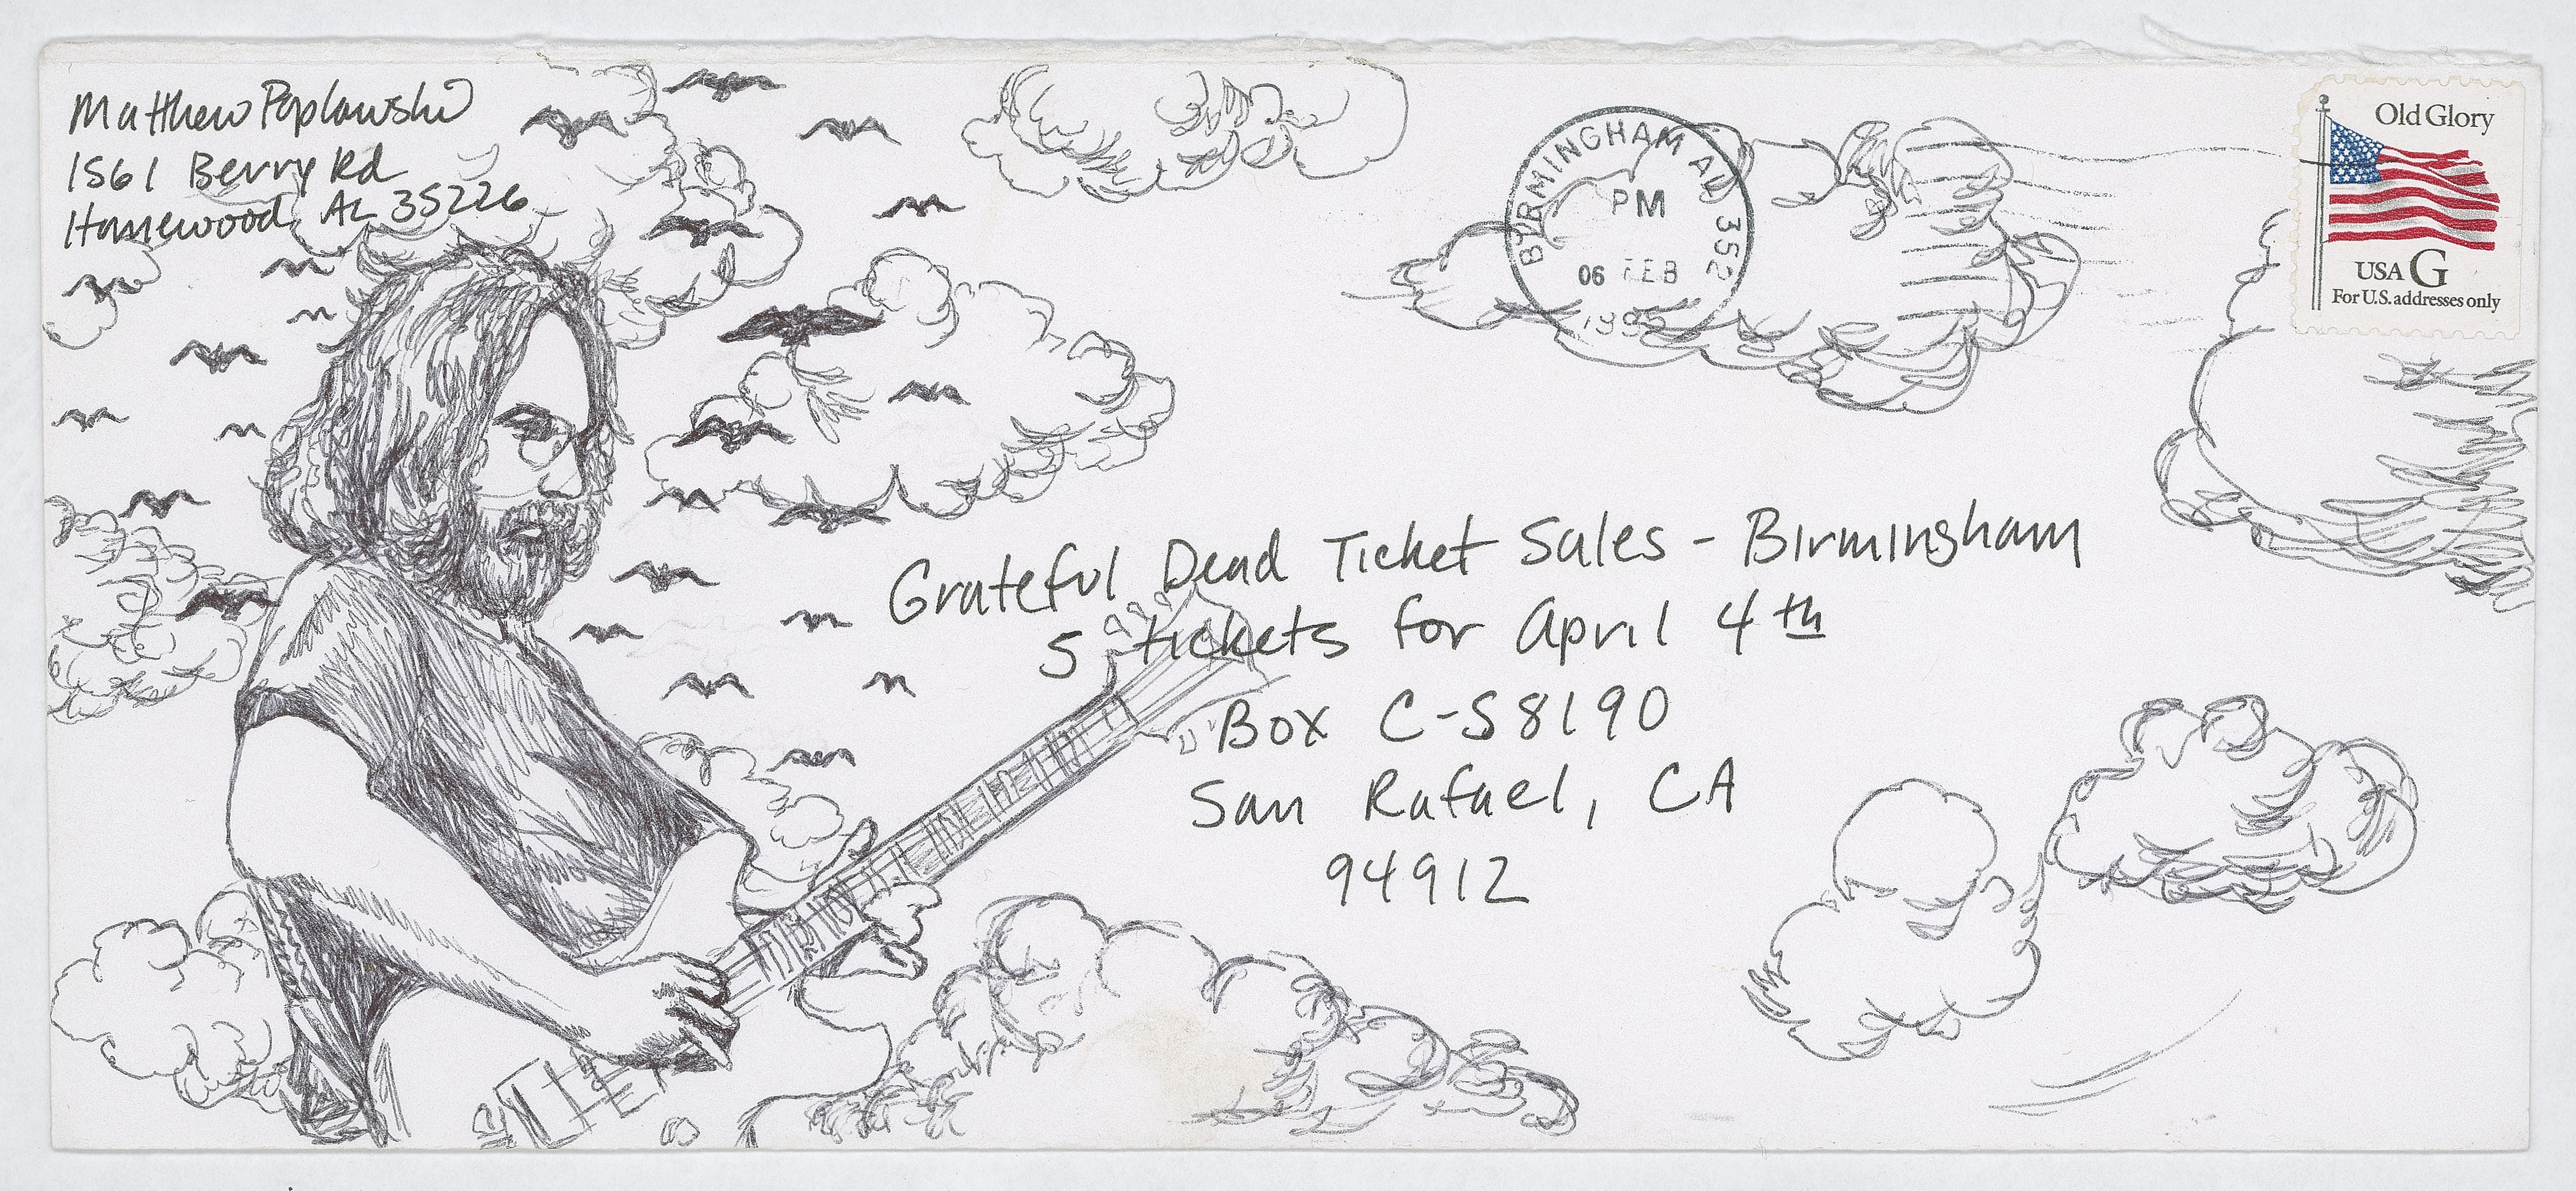 Matthew Poplawski
1561 Berry Rd
Homewood, AL 35226
BIRMINGHAM AL 352
PM
06 FEB
1995
Old Glory
USA G
For U.S. addresses only
Grateful Dead Ticket Sales - Birmingham
5 tickets for April 4th
Box C-S8190
San Rafael, CA
94912